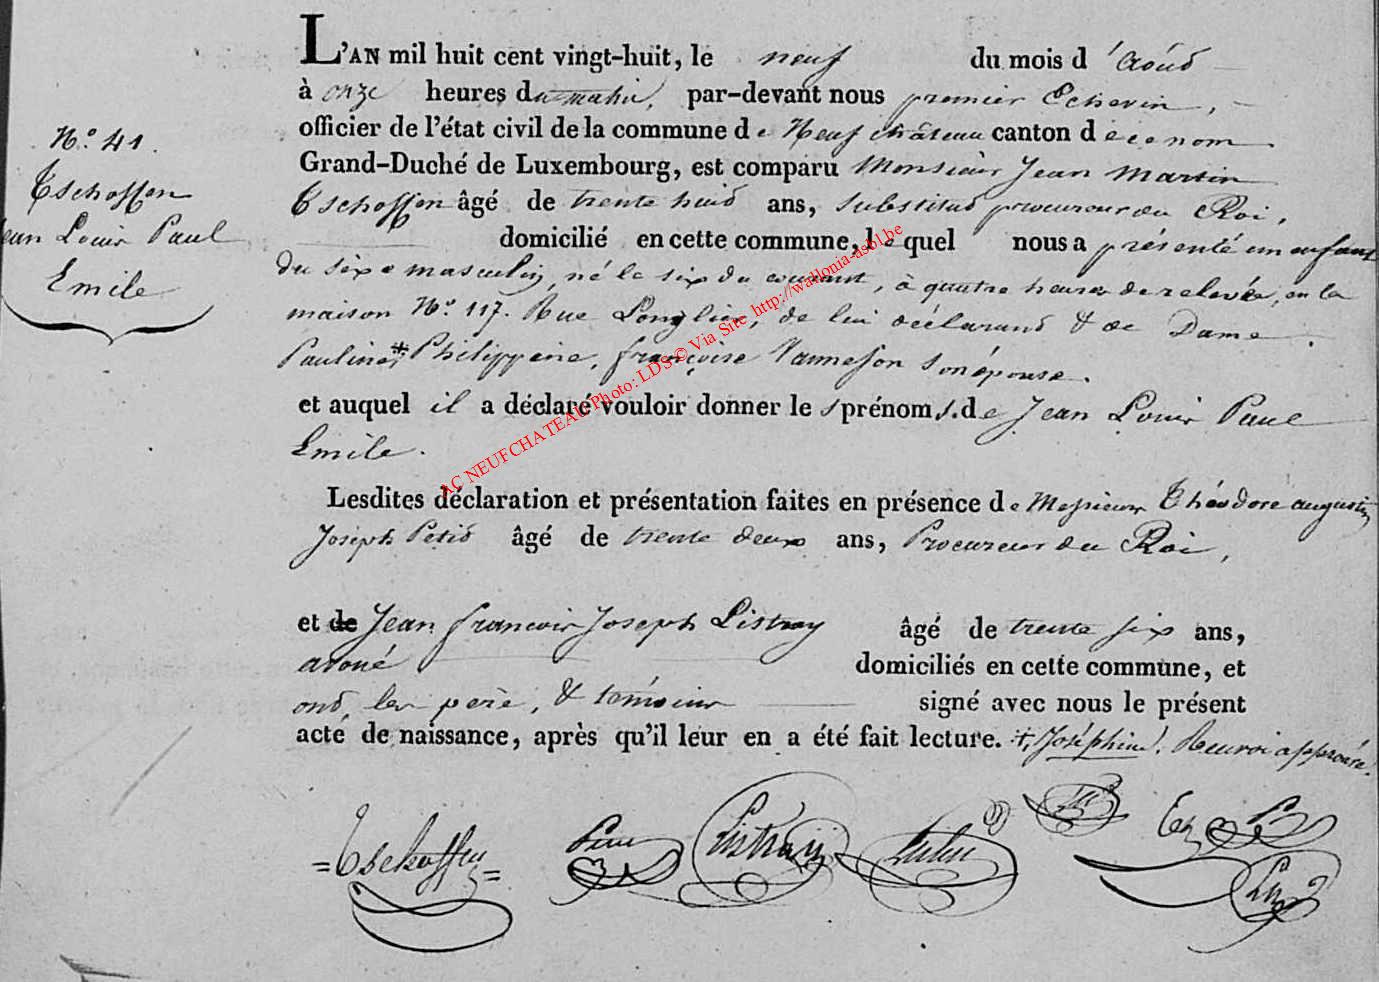 N.o 41.
Tschoffen
Jean Louis Paul
Emile
L'AN mil huit cent vingt-huit, le neuf du mois d'Août
à onze heures du matin, par-devant nous premier Echevin,
officier de l'état civil de la commune de Neufchâteau canton de ce nom
Grand-Duché de Luxembourg, est comparu Monsieur Jean Martin
Tschoffen âgé de trente huit ans, substitut procureur du Roi,
domicilié en cette commune, lequel nous a présenté un enfant
du sexe masculin, né le six du courant, à quatre heures de relevée, en la
maison N.o 117. Rue Longlier, de lui déclarant & de Dame
Pauline, + Philippine, françoise Vannesson son épouse.
et auquel il a déclaré vouloir donner les prénoms de Jean Louis Paul
Emile.
Lesdites déclaration et présentation faites en présence de Messieurs Théodore augustin
Joseph Petit âgé de trente deux ans, Procureur du Roi,
et de Jean francois Joseph Listray âgé de trente six ans,
avoué domiciliés en cette commune, et
ont, les père, & témoins signé avec nous le présent
acte de naissance, après qu'il leur en a été fait lecture. +, Joséphine. Renvoi approuvé.
Tschoffen Listray
AC NEUFCHATEAU Photo: LDS © Via Site http://wallonia-asbl.be